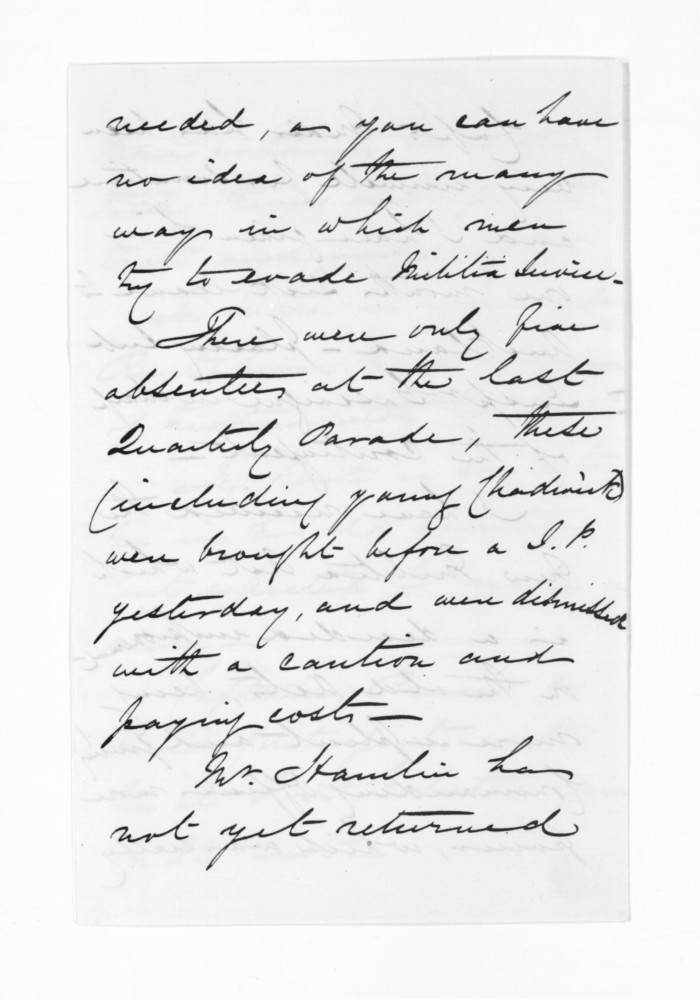 needed, as you can have
no idea of the many
ways in which men
try to evade Militia Service -
There were only five
absentees at the last
Quarterly Parade, these
(including young Chadwick)
were brought before a J.P.
yesterday, and were dismissed
with a caution and
paying costs -
Mr. Hamlin has
not yet returned